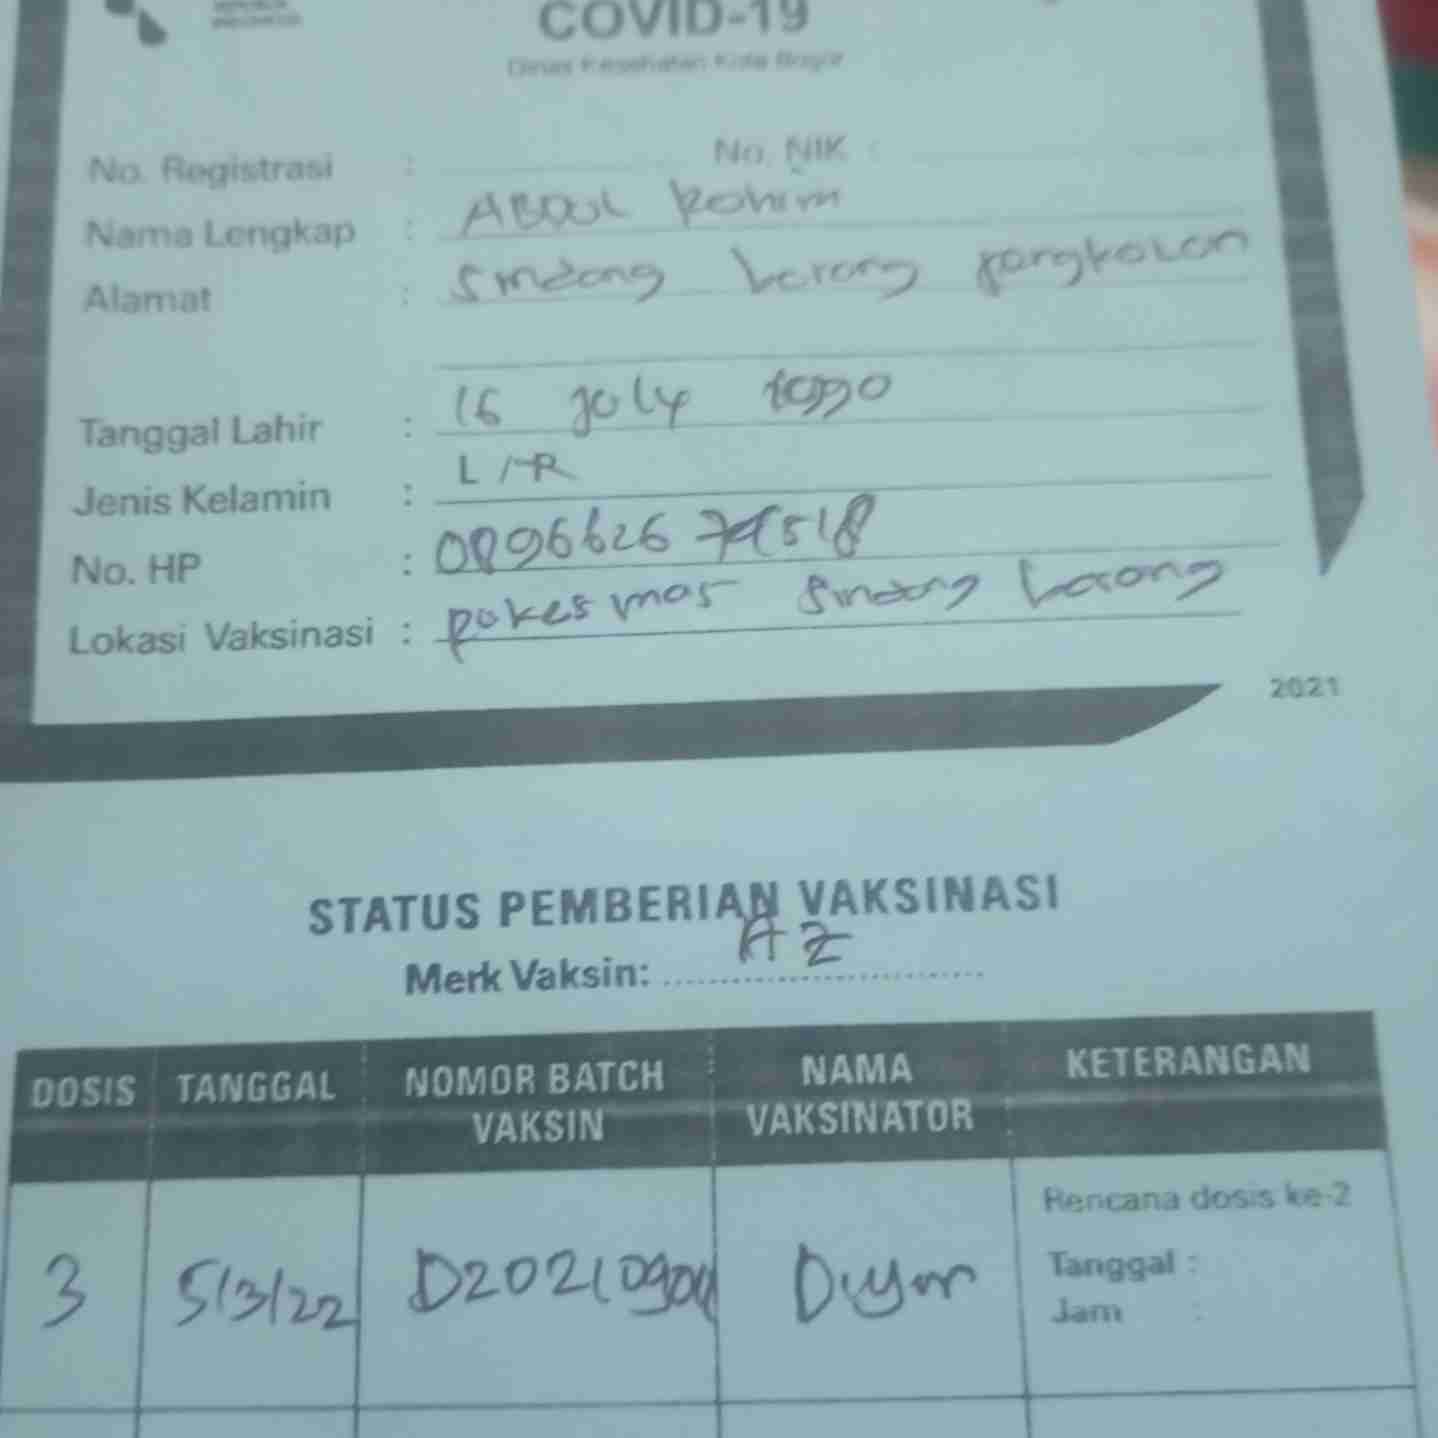 COVID-19
Dinas Kesehatan Kota Bogor
No. Registrasi : No. NIK :
Nama Lengkap : ABDUL Rohim
Alamat : Sindang barang
Tanggal Lahir : 16 july 1990
Jenis Kelamin : L / P
No. HP :
Lokasi Vaksinasi : pukesmas Sindang barang
2021
STATUS PEMBERIAN VAKSINASI
Merk Vaksin: AZ
DOSIS TANGGAL NOMOR BATCH VAKSIN NAMA VAKSINATOR KETERANGAN
3 5/3/22
Rencana dosis ke-2
Tanggal :
Jam :